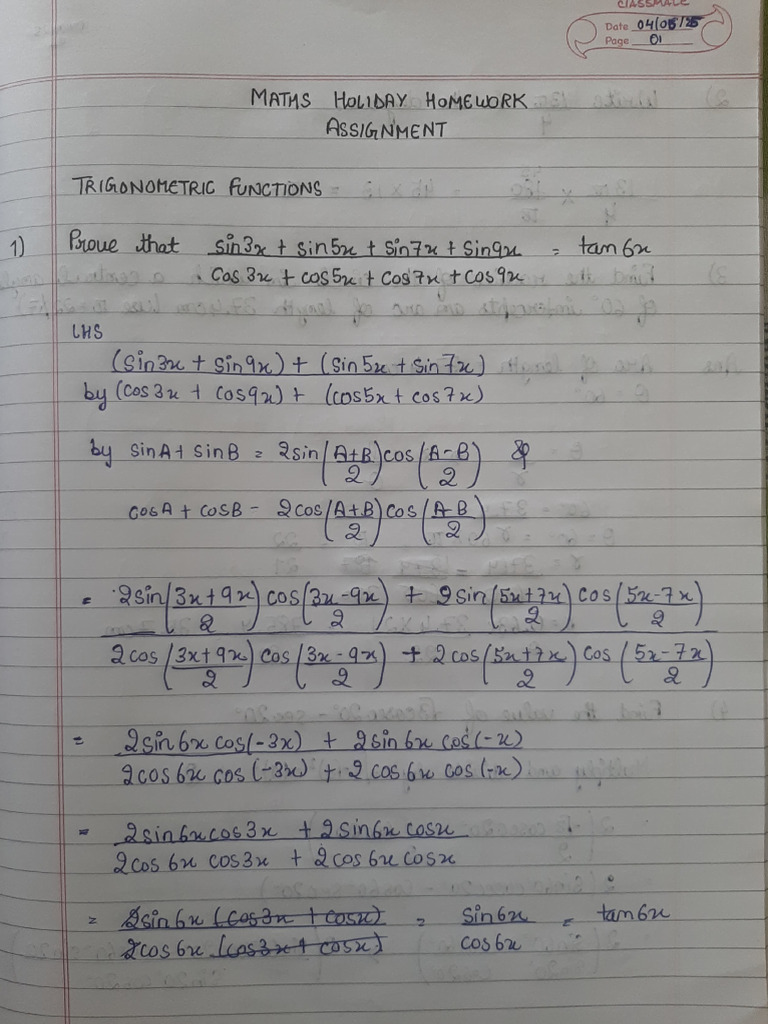 CLASSMATE
Date 04/05/25
Page 01
MATHS HOLIDAY HOMEWORK
ASSIGNMENT
TRIGONOMETRIC FUNCTIONS
1) Prove that sin3x + sin5x + sin7x + sin9x = tan6x
cos3x + cos5x + cos7x + cos9x
LHS
(sin3x + sin9x) + (sin5x + sin7x)
by (cos3x + cos9x) + (cos5x + cos7x)
by sinA + sinB = 2sin(A+B/2)cos(A-B/2) &
cosA + cosB - 2cos(A+B/2)cos(A-B/2)
= 2sin(3x+9x/2)cos(3x-9x/2) + 2sin(5x+7x/2)cos(5x-7x/2)
2cos(3x+9x/2)cos(3x-9x/2) + 2cos(5x+7x/2)cos(5x-7x/2)
= 2sin6x cos(-3x) + 2sin6x cos(-x)
2cos6x cos(-3x) + 2cos6x cos(-x)
= 2sin6xcos3x + 2sin6x cosx
2cos6x cos3x + 2cos6x cosx
= 2sin6x (cos3x + cosx) = sin6x = tan6x
2cos6x (cos3x + cosx) cos6x